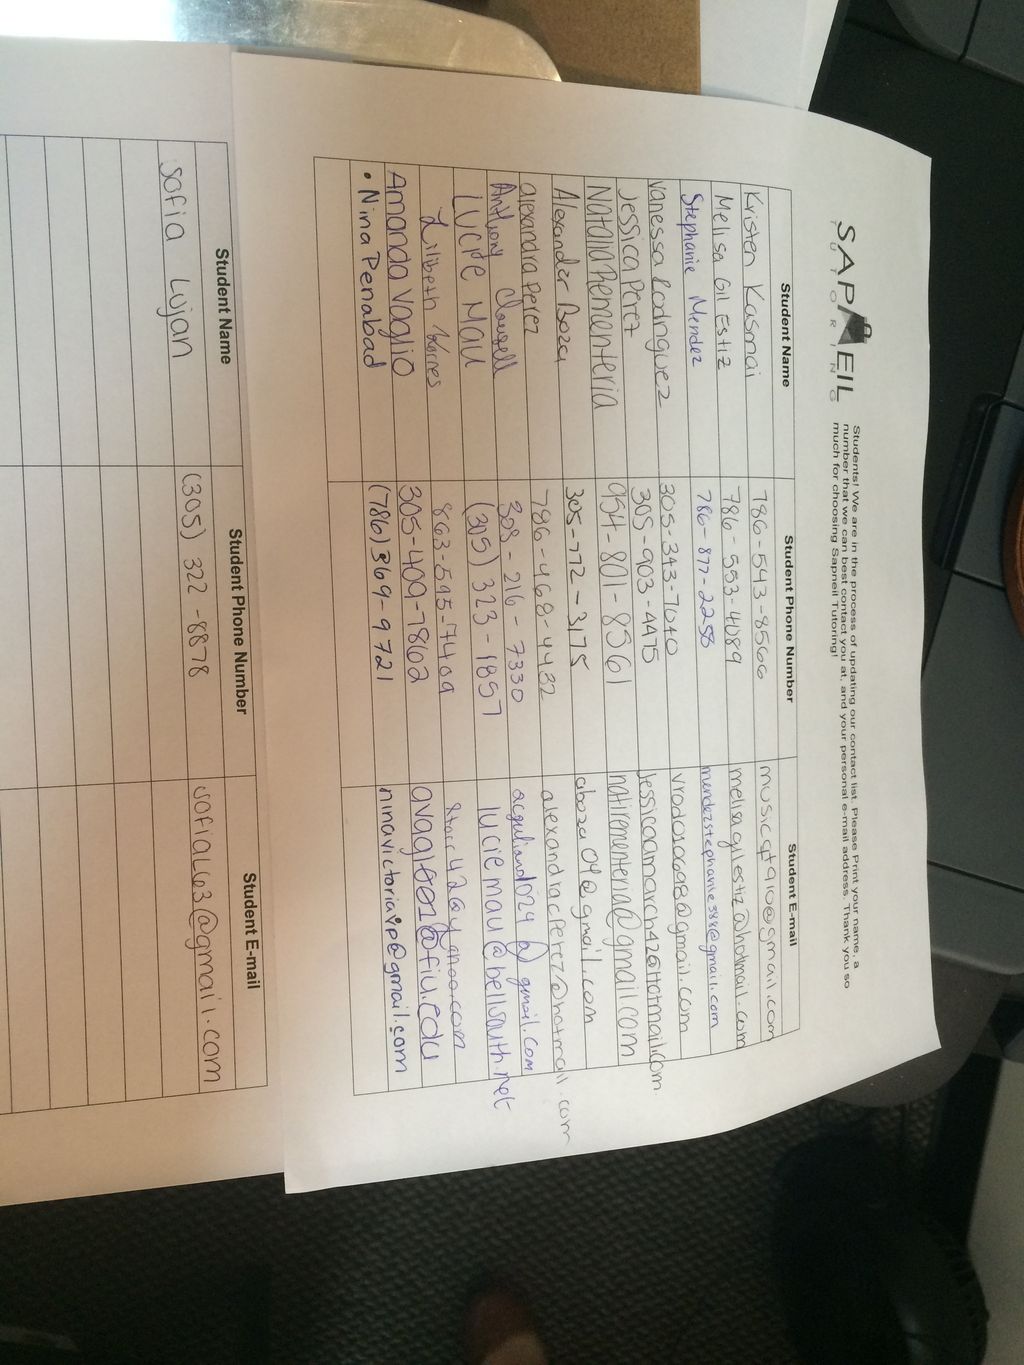 SAPNEIL
TUTORING
Students! We are in the process of updating our contact list. Please Print your name, a
number that we can best contact you at, and your personal e-mail address. Thank you so
much for choosing Sapneil Tutoring!
Student Name Student Phone Number Student E-mail
Kristen Kasmai 786-543-8566 musicqt910@gmail.com
Melisa Gil Estiz 786-553-4089 melisagilestiz@hotmail.com
Stephanie Mendez 786-877-2258 mendezstephanie388@gmail.com
Vanessa Rodriguez 305-343-7040
Jessica Perez 305-903-4475 Jessicaamarch42@Hotmail.com
Natalia Rementeria 954-801-8561 natirementeria@gmail.com
Alexander Boza 305-772-3175 aboza04@gmail.com
alexandra Perez 786-468-4432 alexandracperez@hotmail.com
Anthony 308-216-7330
Lucie Mau (305) 323-1857 luciemau@bellsouth.net
Lilibeth 863-545-7409
Amanda Vaglio 305-409-7862 avagl001@fiu.edu
• Nina Penabad (786) 369-9721 ninavictoriavp@gmail.com
Student Name Student Phone Number Student E-mail
Sofia Lujan (305) 322-8878 sofial63@gmail.com